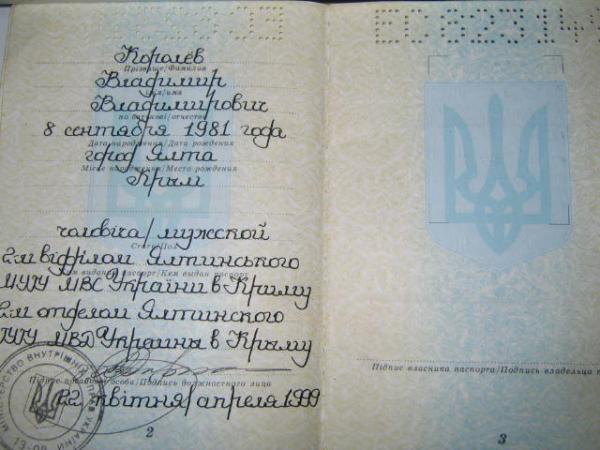 Королёв
Прізвище/Фамилия
Владимир
Ім'я/имя
Владимирович
по батькові/отчество
8 сентября 1981 года
Дата народження/Дата рождения
город Ялта
Місце народження/Место рождения
Крым
чоловіча/мужской
Стать/Пол
2-м відділом Ялтинського
Ким виданий паспорт/Кем выдан паспорт
МУГУ МВС України в Криму
2-м отделом Ялтинского
ГУГУ МВД Украины в Крыму
МІНІСТЕРСТВО ВНУТРІШНІХ СПРАВ УКРАЇНИ
Підпис посадової особи/Подпись должностного лица
22 квітня/апреля 1999
2
ЕС623141
Підпис власника паспорта/Подпись владельца
3